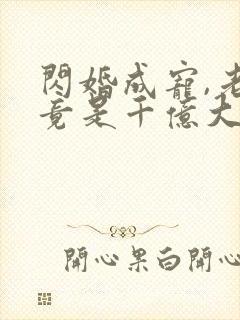 閃婚成寵,老
竟是千億大
開心果白開心